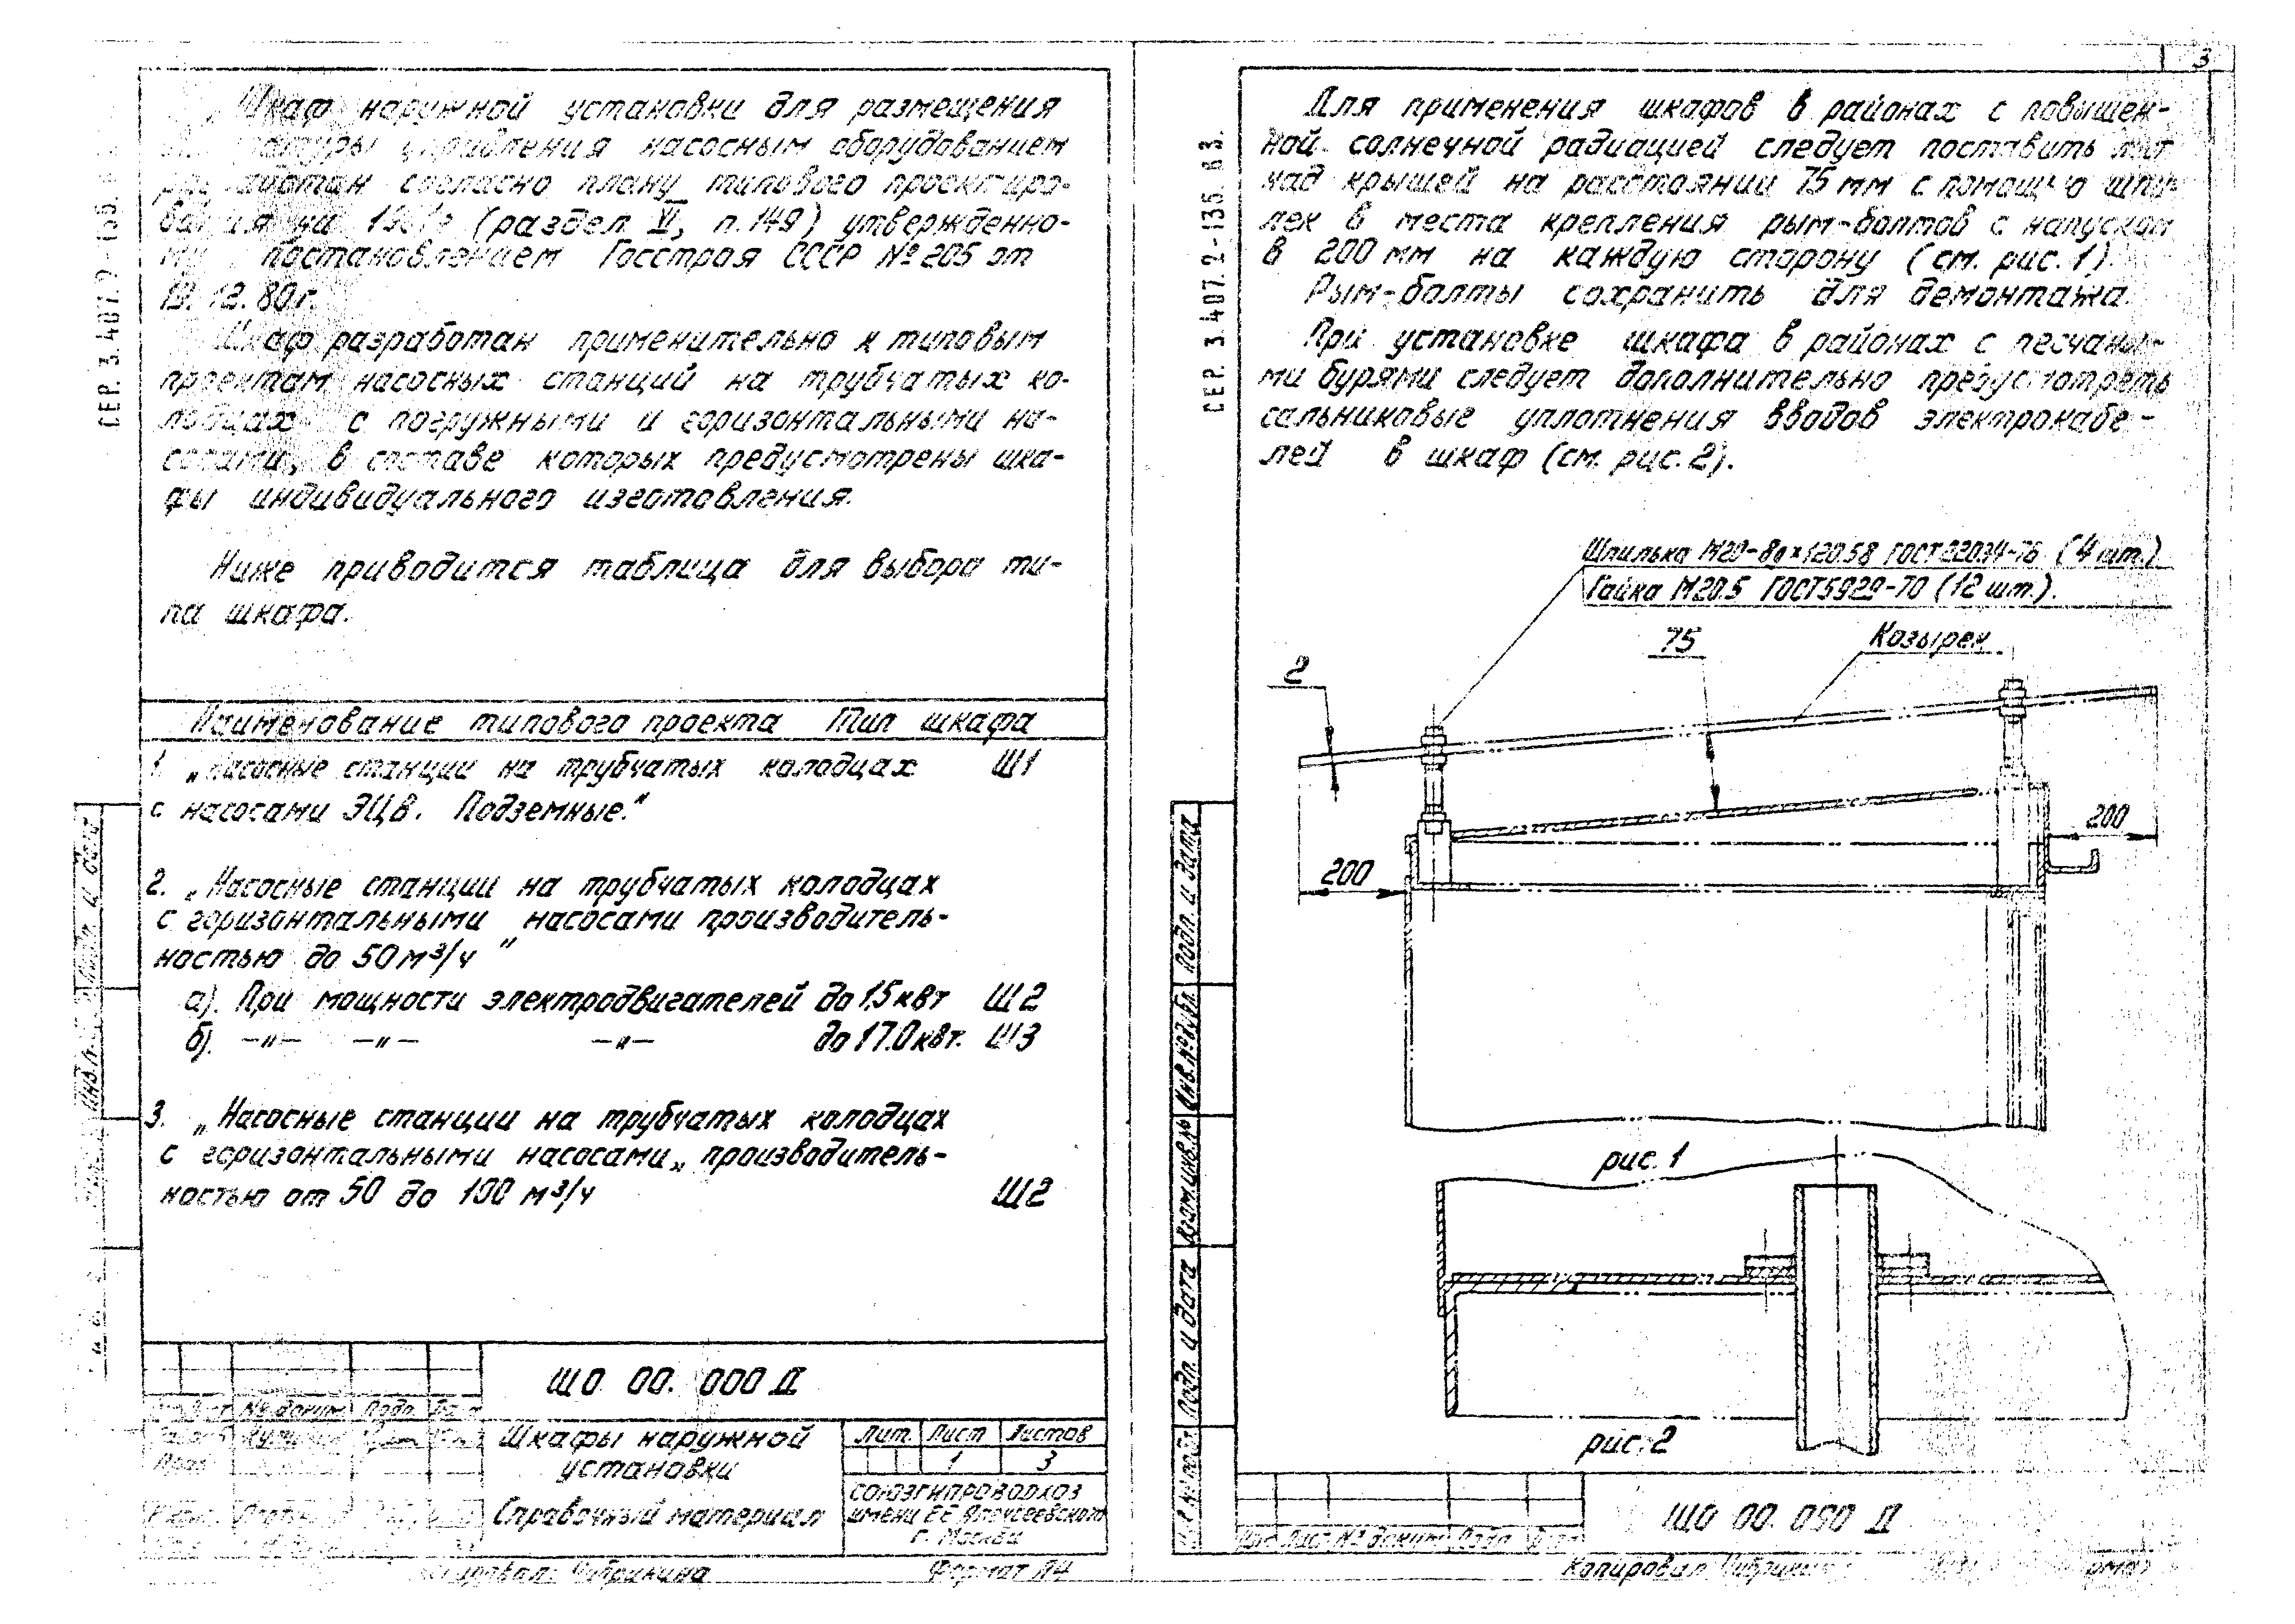 Шкаф наружной установки для размещения
управления насосным оборудованием
согласно плану типового проектиро-
вания на (раздел VI, п.149) утвержденно-
му постановлением Госстроя СССР №205 от
19.12.80г.
Шкаф разработан применительно к типовым
проектам насосных станций на трубчатых ко-
лодцах с погружными и горизонтальными на-
сосами, в составе которых предусмотрены шка-
фы индивидуального изготовления.
Ниже приводится таблица для выбора ти-
па шкафа.
Наименование типового проекта Тип шкафа
1. „Насосные станции на трубчатых колодцах Ш1
с насосами ЭЦВ. Подземные."
2. „Насосные станции на трубчатых колодцах
с горизонтальными насосами производитель-
ностью до 50 м³/ч "
а). При мощности электродвигателей до 1,5 квт Ш2
б). —"— —"— —"— до 17.0 квт. Ш3
3. „Насосные станции на трубчатых колодцах
с горизонтальными насосами„ производитель-
ностью от 50 до 100 м³/ч Ш2
ШО 00. 000 Д
№ докум. Подп. Дата
Шкафы наружной
установки
Справочный материал
Лит. Лист Листов
1 3
СОЮЗГИПРОВОДХОЗ
имени Е.Е. Алексеевского
г. Москва
Копировал: Чибрикина Формат А4
СЕР. 3.407.9-135.
3
СЕР. 3.407.2-135.83.
Для применения шкафов в районах с повышен-
ной солнечной радиацией следует поставить
над крышей на расстоянии 75 мм с помощью шпи-
лек в места крепления рым-болтов с напуском
в 200 мм на каждую сторону (см. рис. 1).
Рым-болты сохранить для демонтажа.
При установке шкафа в районах с песчаны-
ми бурями следует дополнительно предусмотреть
сальниковые уплотнения вводов электрокабе-
лей в шкаф (см. рис. 2).
Шпилька М20-8g×120.58 ГОСТ 22034-76 (4 шт.)
Гайка М20.5 ГОСТ 5929-70 (12 шт.).
2
75
Козырек
200
200
рис. 1
рис. 2
Подп. и дата
Инв. № дубл.
Взам. инв. №
Подп. и дата
Инв. № подл.
ШО 00. 000 Д
Изм. Лист № докум. Подп. Дата
Копировал Чибрикина